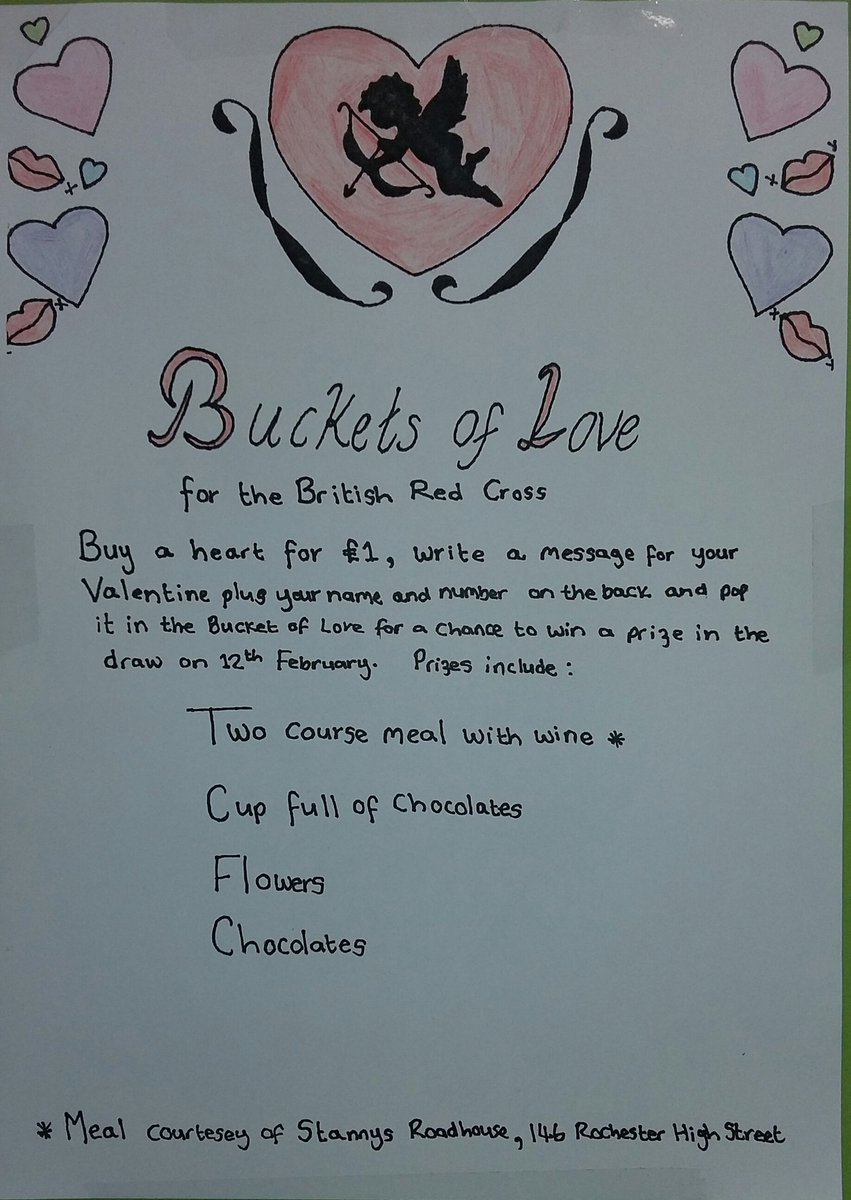 Buckets of Love
for the British Red Cross
Buy a heart for £1, write a message for your
Valentine plus your name and number on the back and pop
it in the Bucket of Love for a chance to win a prize in the
draw on 12th February. Prizes include:
Two course meal with wine *
Cup full of chocolates
Flowers
Chocolates
* Meal courtesey of Stannys Roadhouse, 146 Rochester High Street